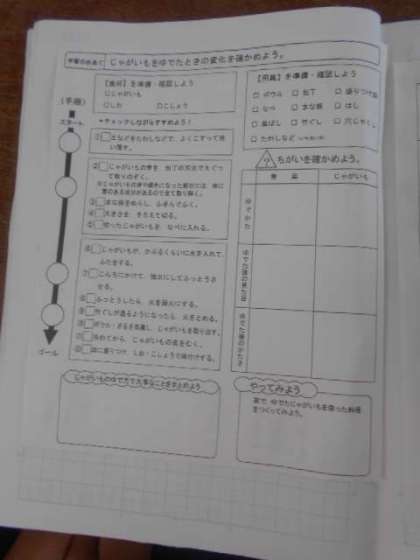 じゃがいもをゆでたときの変化を確かめよう。
【食材】を準備・確認しよう
□じゃがいも
□しお □こしょう
【用具】を準備・確認しよう
□ボウル □包丁
□なべ □まな板 □はし
□竹ぐし
□たわしなど
(手順)
★チェックしながらすすめよう!
スタート
①□土などをたわしなどで、よくこすって洗い落す。
②□じゃがいもの芽を、包丁の
③□まな板をぬらし、ふきんでふく。
④□大きさを、そろえて切る。
⑤□切ったじゃがいもを、なべに入れる。
⑥□じゃがいもが、かぶるくらいに水を入れて、
ふたをする。
⑦□こんろにかけて、強火にしてふっとうさ
せる。
□ふっとうしたら、火を弱火にする。
□竹ぐしが通るようになったら、火をとめる。
じゃがいもを取り出す。
じゃがいもの皮をむく。
しお・こしょうで味付けする。
ゴール
ちがいを確かめよう。
青菜 じゃがいも
ゆでかた
ゆでた後の見た目
ゆでた後のかたさ
じゃがいものゆで方で大事なことをまとめよう
やってみよう
家で ゆでたじゃがいもを使った料理
をつくってみよう。